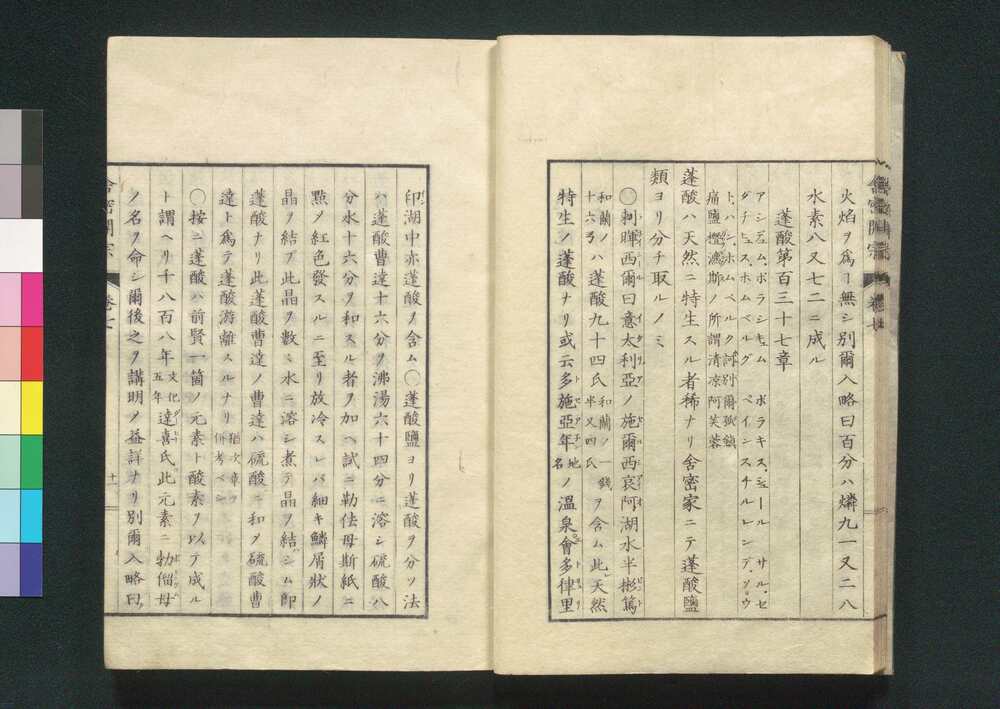 火焰ヲ爲ー無シ別爾入略曰百分ハ燐九一又二八
水素八又七二ニ成ル
蓬酸第百三十七章
アシデュム、ボラシキュム　ボラキス、シュール　サル、セ
ダチヒュス、ホムベルグ　ペインスチルレンデ、ソウ
ト、ハン、ホムベルク
痛鹽
ノ所謂清凉阿芙蓉
蓬酸ハ天然ニ特生スル者稀ナリ舍密家ニテ蓬酸鹽
類ヨリ分チ取ルノミ
○刺暉西爾曰意太利亞ノ施爾西哀阿湖水半彬篤
和蘭ノ十六弓ハ蓬酸九十四氏和蘭ノ一錢半又四氏ヲ含ム此天然
特生ノ蓬酸ナリ或云多施亞年地名ノ溫泉會多律里
印湖中亦蓬酸ヲ含ム○蓬酸鹽ヨリ蓬酸ヲ分ツ法
ハ蓬酸曹達十六分ヲ沸湯六十四分ニ溶シ硫酸八
分水十六分ヲ和スル者ヲ加ヘ試ニ勒佉母斯紙ニ
㸃〆紅色發スルニ至リ放冷スレバ細キ鱗屑狀ノ
晶ヲ結ブ此晶ヲ數〻水ニ溶シ煮テ晶ヲ結シム卽
蓬酸ナリ此蓬酸曹達ノ曹達ハ硫酸ニ和〆硫酸曹
達ト爲テ蓬酸游離スルナリ猶次章ヲ併考ベシ
○按ニ蓬酸ハ前賢一箇ノ元素ト酸素ヲ以テ成ル
ト謂ヘリ千八百八年文化五年達喜氏此元素ニ勃僧母
ノ名ヲ命シ爾後之ヲ講明ノ益詳ナリ別爾入略曰
舍密開宗
卷七
十一